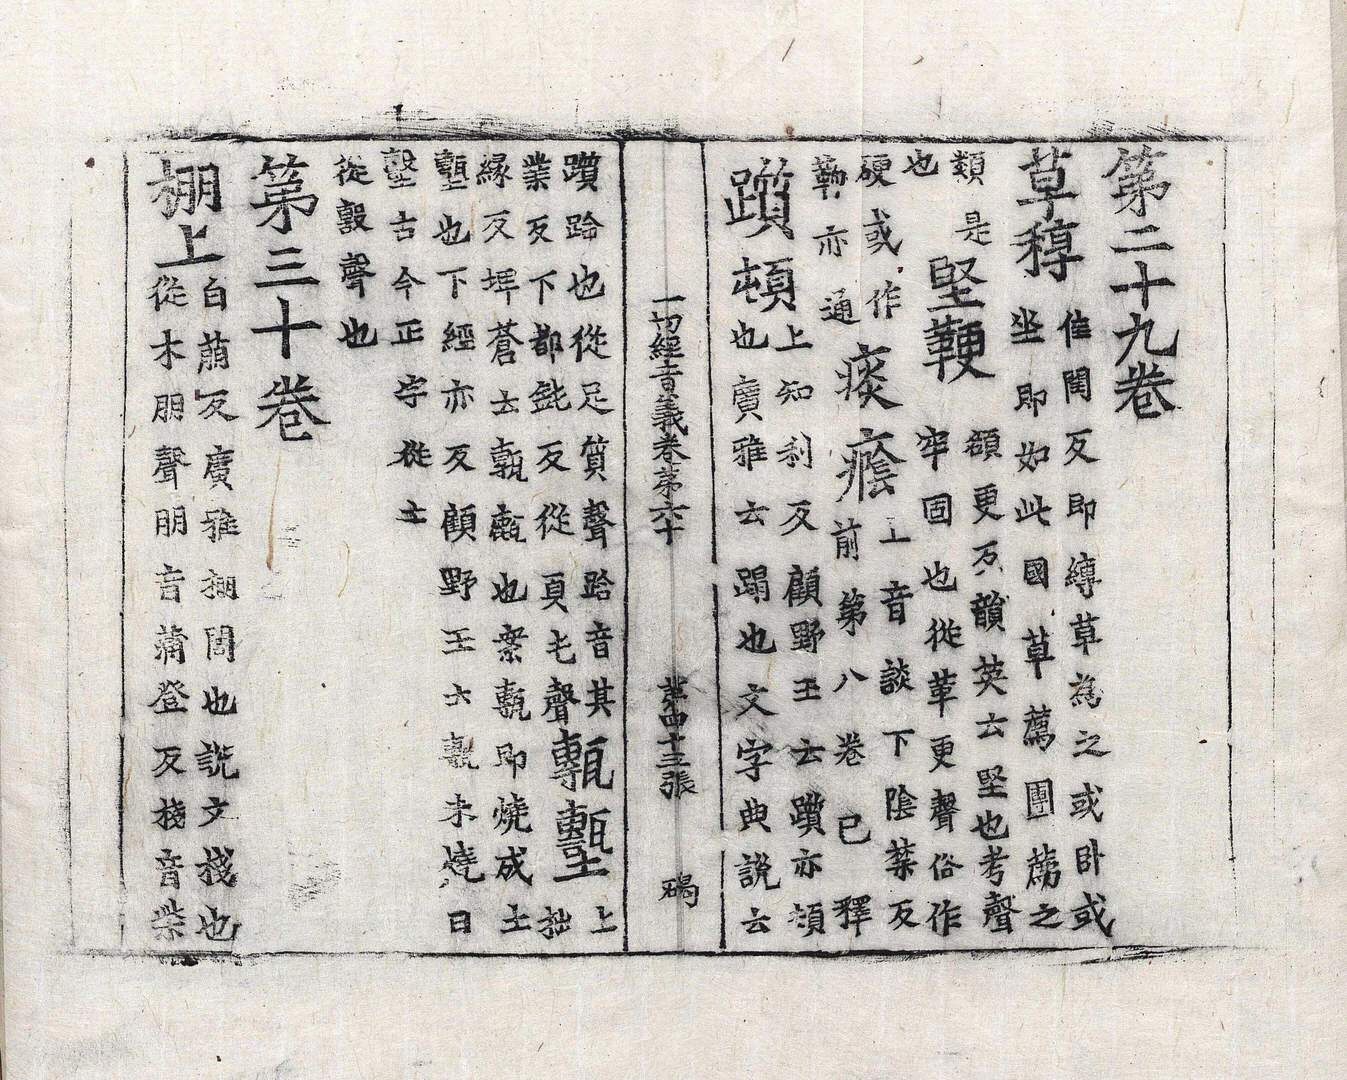 第二十九卷
草稕
佳閏反即縛草為之或卧或
坐即如此國草薦團薦之
類是
也
堅鞕
額更反韻英云堅也考聲
牢固也從革更聲俗作
硬或作
亦通
痰癊
上音談下陰禁反
前第八卷已釋
躓頓
上知利反顧野王云躓亦頓
也廣雅云蹋也文字典說云
一切經音義卷第六十 第四十三張 碣
躓跲也從足質聲跲音其
業反下都鈍反從頁屯聲
甎墼
上
拙
緣反埤蒼云甎也案甎即燒成土
墼也下經亦反顧野王云甎未燒曰
墼古今正字從土
從毄聲也
第三十卷
棚上
白萠反廣雅棚閣也說文棧也
從木朋聲朋音蒲登反棧音柴